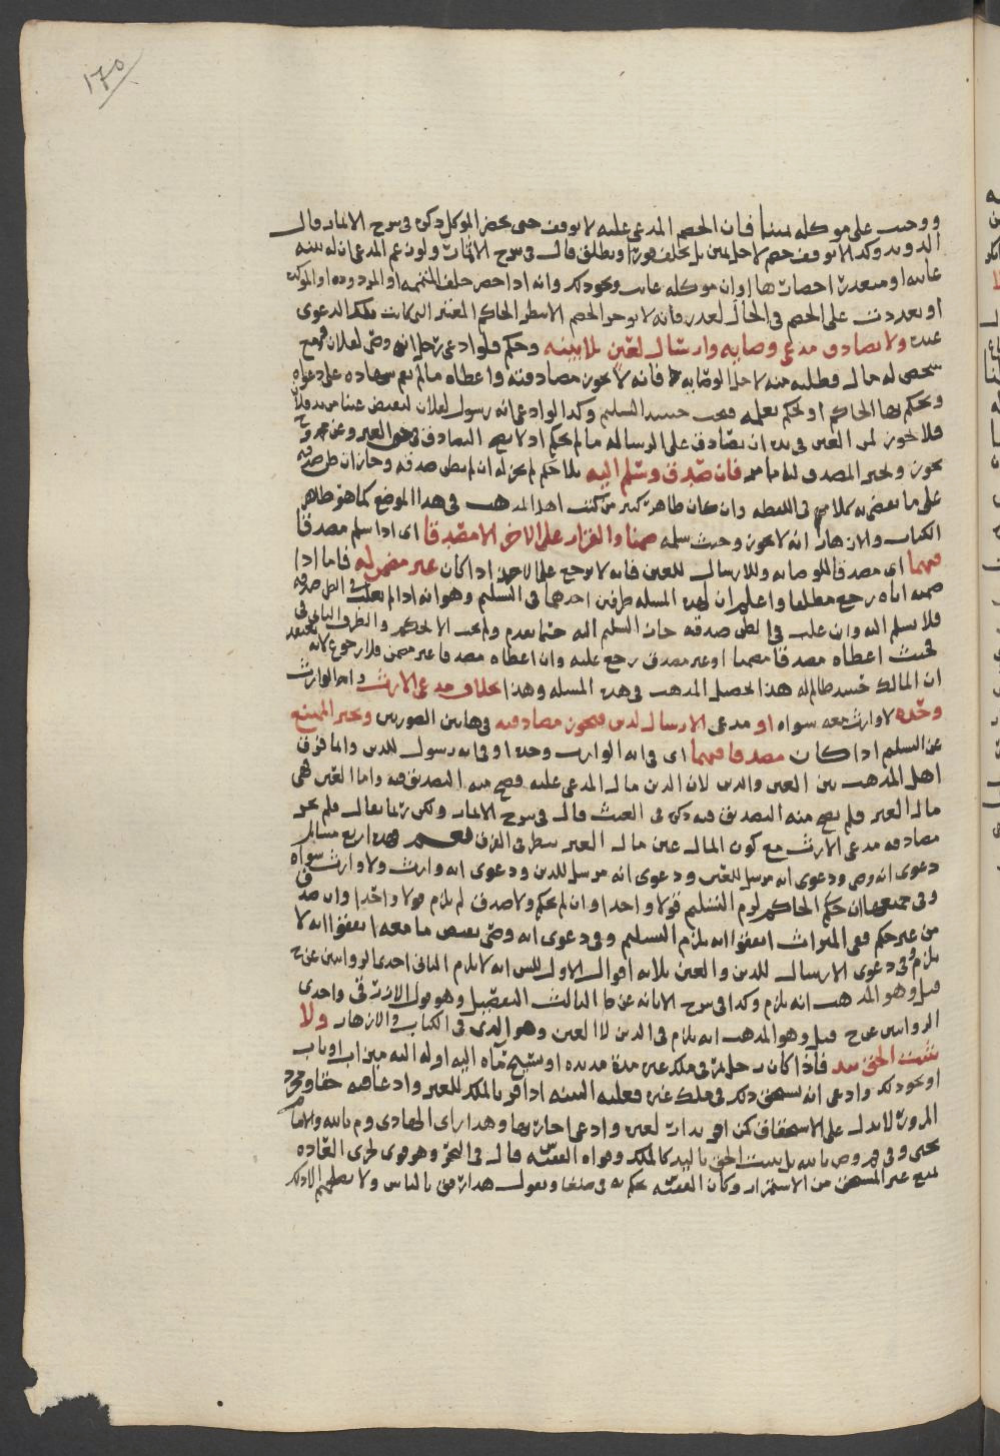 ١٧٥
ووجب على موكله فان الخصم المدعى عليه لا يوقف حتى يحضر الموكل ذكره في شرح الاثمار قال
الدويد وكذا لا يوقف خصم لاجل يمين بل يحلف فورا او يطلق قال في شرح الاثمار ولو زعم المدعي ان له بينه
غايبه او متعذرة احضارها او ان موكله غايب ونحو ذلك وانه اذا حضر حلف المتممه او المردوده او الموكده
او تعذرت على الخصم في الحال لعذر فانه لا يوخر الخصم الا بنظر الحاكم المعتبر ان كانت تلك الدعوى
عنده ولا يصادق مدعي وصايه وارسال لعين الا ببينه وحكم فلو ادعى رجل انه وصي لفلان
شخص له مال وطلبه منه لاجل الوصايه فانه لا يجوز مصادقته واعطاه ما لم يقم شهاده على دعواه
ويحكم بها الحاكم او يحكم بعلمه فيجب حينيذ التسليم وكذا لو ادعى انه رسول لفلان لقبض عينا من يد فلان
فلا يجوز لمن العين في يده ان يصادق على الرساله ما لم يحكم اذ لا يصح التصادق في حق الغير وعن
يجوز ويجبر المصدق فان صدق وسلم اليه بلا حكم لم يجز له ان لم يظن صدقه وجاز ان ظن صدقه
على ما يقضي به كلامهم في اللقطه وان كان ظاهر كثير من كتب اهل المذهب في هذا الموضع كما هو ظاهر
الكتاب والازهار انه لا يجوز وحيث سلمه ضمنا والقرار على الاخر الا مصدقا اي اذا سلم مصدقا
فيهما اي مصدقا للوصايه وللارسال للعين فانه لا يرجع على الاخذ اذا كان غير مضمن له فاما اذا
ضمنه اياه رجع مطلقا واعلم ان لهذه المسله طرفين احدهما في التسليم وهو انه اذا لم يغلب في الظن صدقه
فلا يسلم اليه وان غلب في الظن صدقه جاز التسليم اليه كما تقدم ولم يجب الا بالحكم والطرف الثاني في
فحيث اعطاه مصدقا مضمنا او غير مصدق رجع عليه وان اعطاه مصدقا غير مضمن فلا رجوع لانه يعتقد
ان المالك ظالم له هذا تحصيل المذهب في هذه المسله وهذا بخلاف مدعي الارث واحد الوارث
وحده لا وارث معه سواه او مدعي الارسال لدين فيجوز مصادقته في هاتين الصورتين ويجبر الممتنع
عن التسليم اذا كان مصدقا فيهما اي في انه الوارث وحده او في انه رسول للدين وانما فرق
اهل المذهب بين العين والدين لان الدين مال المدعى عليه فصح منه التصديق فيه واما العين فهي
مال الغير فلم يصح منه التصديق فيه ذكره في الغيث قال في شرح الاثمار ولكن ربما يقال فلم يجز
مصادقه مدعي الارث مع كون المال عين مال الغير ينظر في الفرق نعم هذه اربع مسايل
دعوى انه وصي ودعوى انه مرسل للعين ودعوى انه مرسل للدين ودعوى انه وارث ولا وارث سواه
وفي جميعها ان حكم الحاكم لزم التسليم قولا واحدا وان لم يحكم ولا صدق لم يلزم قولا واحدا وان صدق
من غير حكم ففي الميراث اتفقوا انه يلزم التسليم وفي دعوى انه وصي بقبض ما معه اتفقوا انه لا
يلزم وفي دعوى الارسال للدين والعين ثلاثه اقوال الاول انه لا يلزم الثاني احدى الروايتين عن ح
قيل وهو المذهب انه يلزم وكذا في شرح الابانه عن ط الثالث التفصيل وهو قول الازرقي واحدى
الروايتين عن ح قيل وهو المذهب انه يلزم في الدين لا العين وهو الذي في الكتاب والازهار ولا
يثبت الحق بيد فاذا كان رجل يمر في ملك غيره مدة مديده او يسيح ماه اليه او له اليه ميزاب او باب
او نحو ذلك وادعى انه يستحق ذلك في ملك غيره فعليه البينه اذا قر بالملك للغير وادعى فيه حقا ومجرد
المرور لا يدل على الاستحقاق كمن اقر بدار لغيره وادعى اجارتها وهذا راي الهادي وم بالله والامام
يحيى بل يثبت الحق باليد كالملك وقواه الفقيه قال في البحر وهو قوي لجري العاده
لمنع غير المستحق من الاستمرار وكان الفقيه يحكم به في صنعا ويقول هذا ارفق بالناس ولا يصلحهم الا ذلك